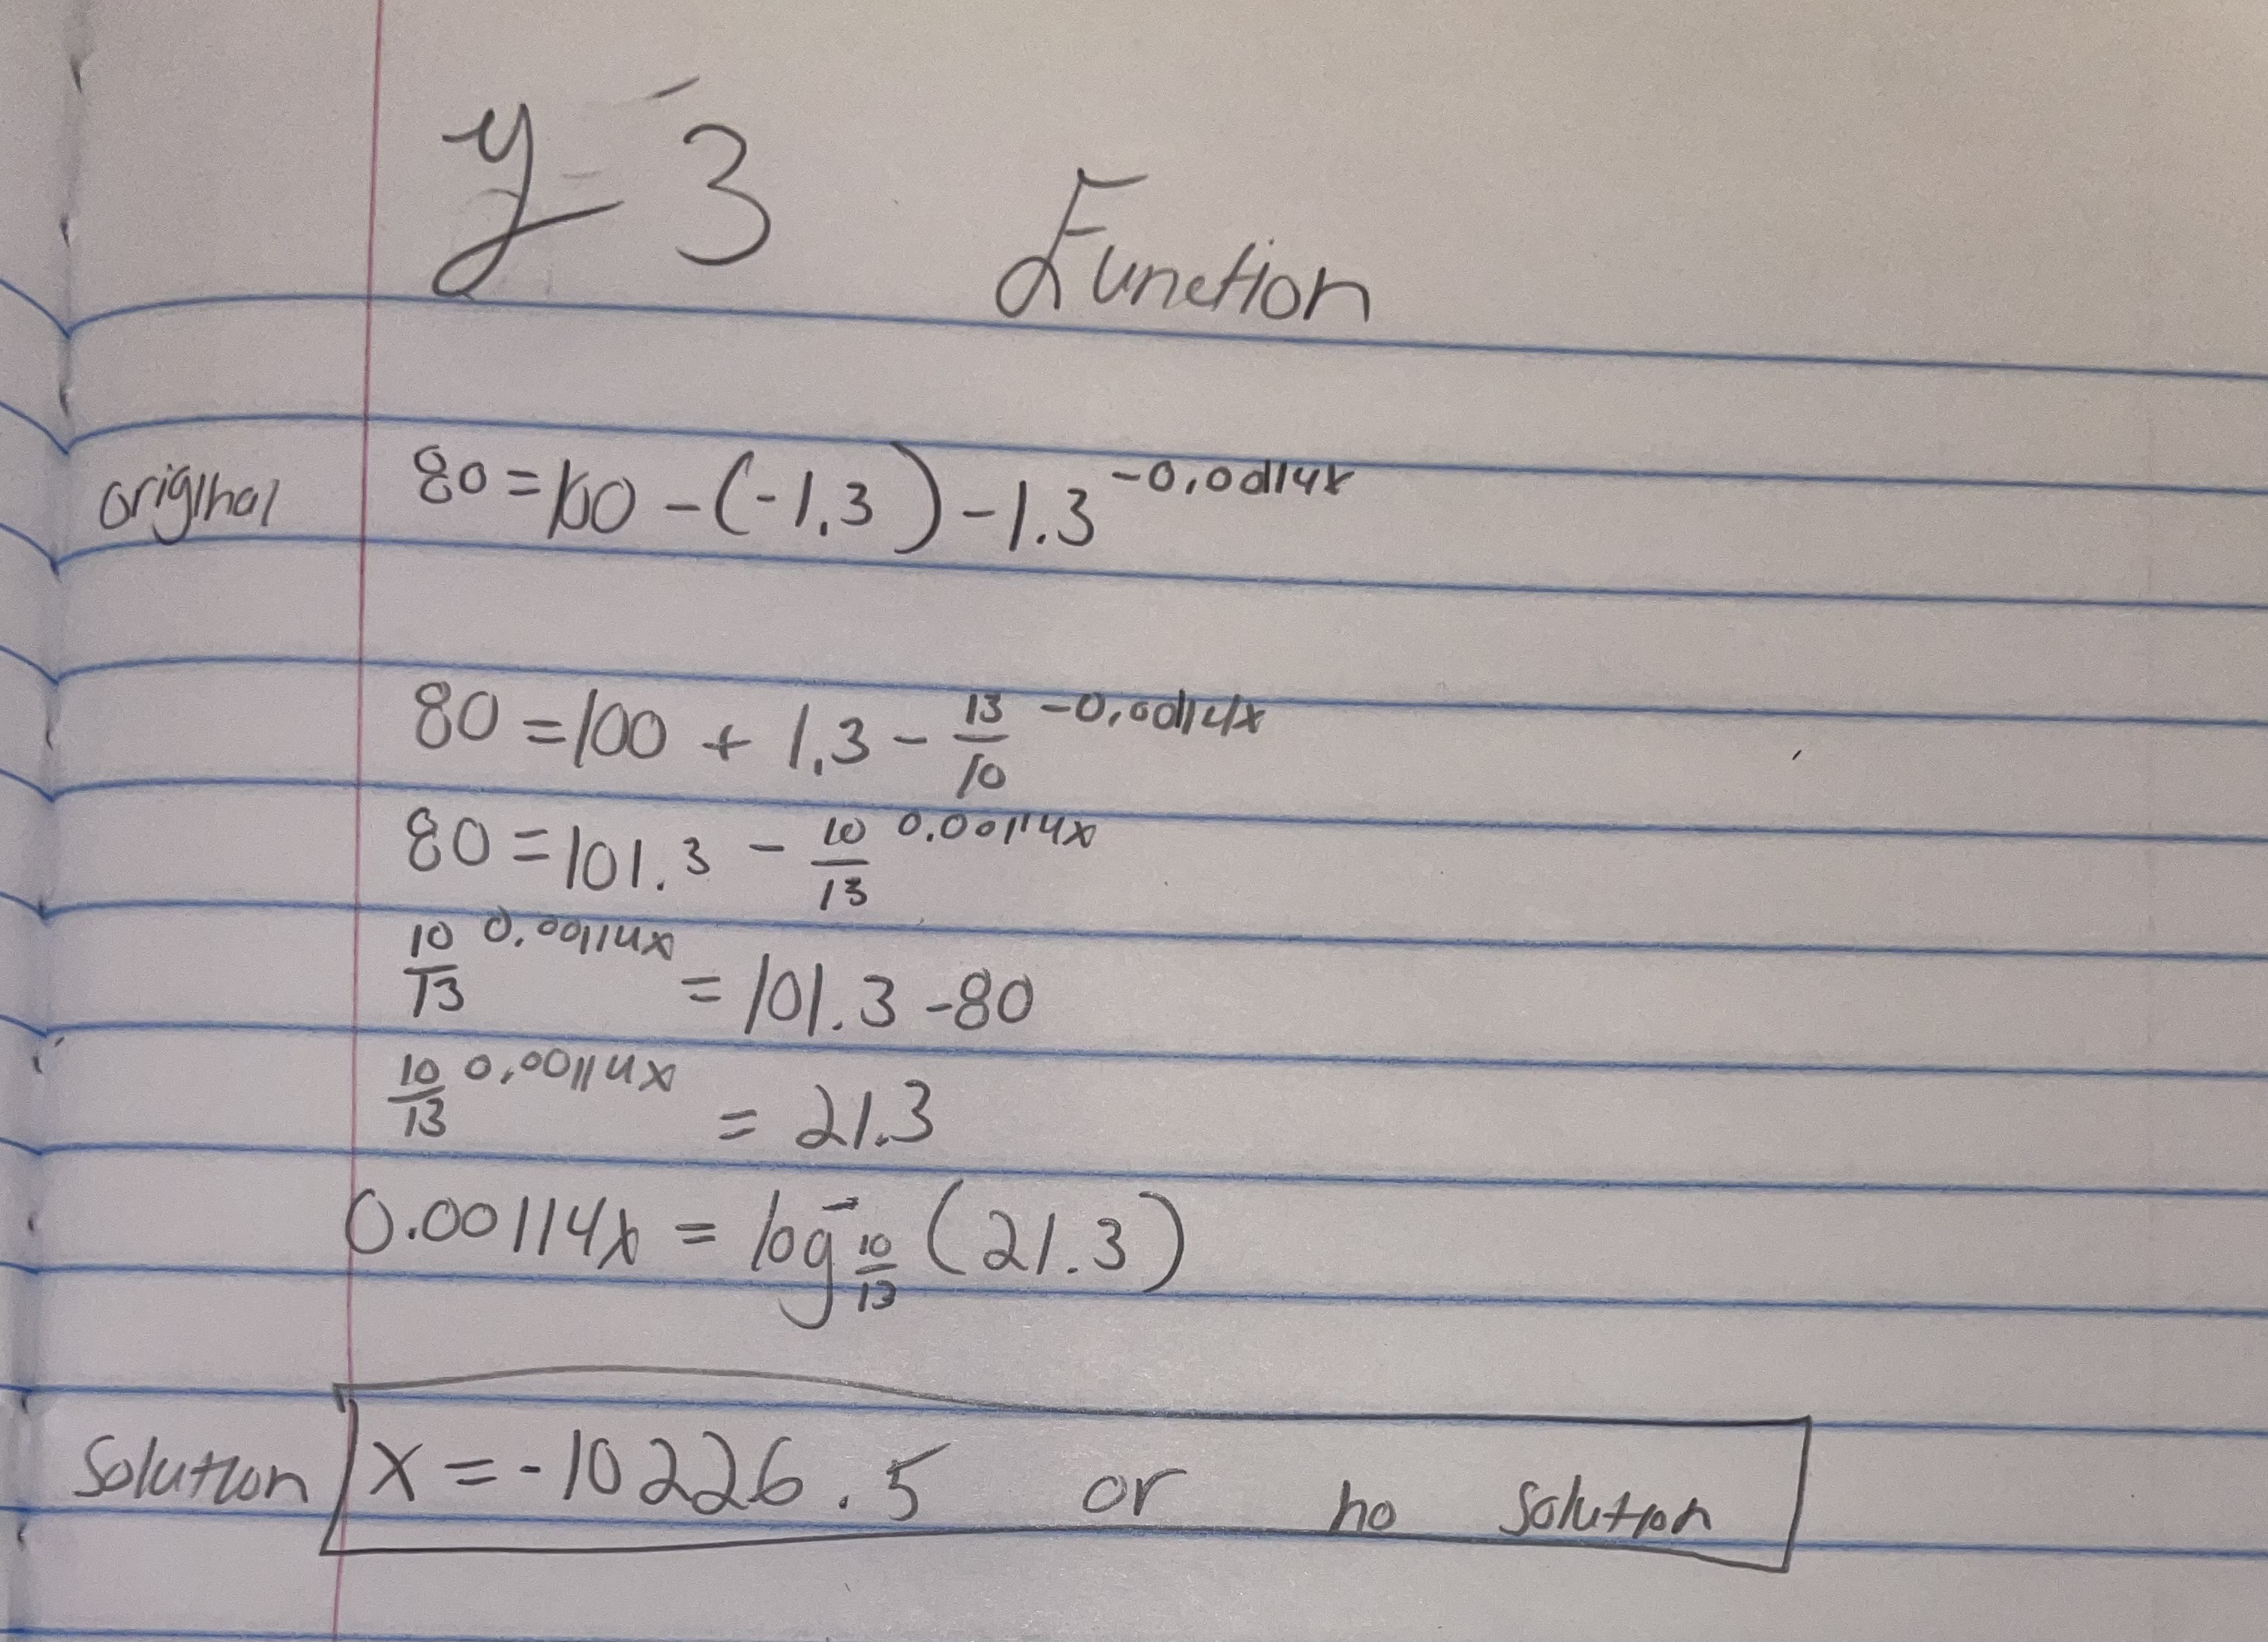 y=3 Function
original 80=100-(-1.3)-1.3^-0.00114x
80=100+1.3-13/10^-0.00114x
80=101.3-10/13^0.00114x
10/13^0.00114x=101.3-80
10/13^0.00114x=21.3
0.00114x=log_10/13(21.3)
Solution x=-10226.5 or no solution